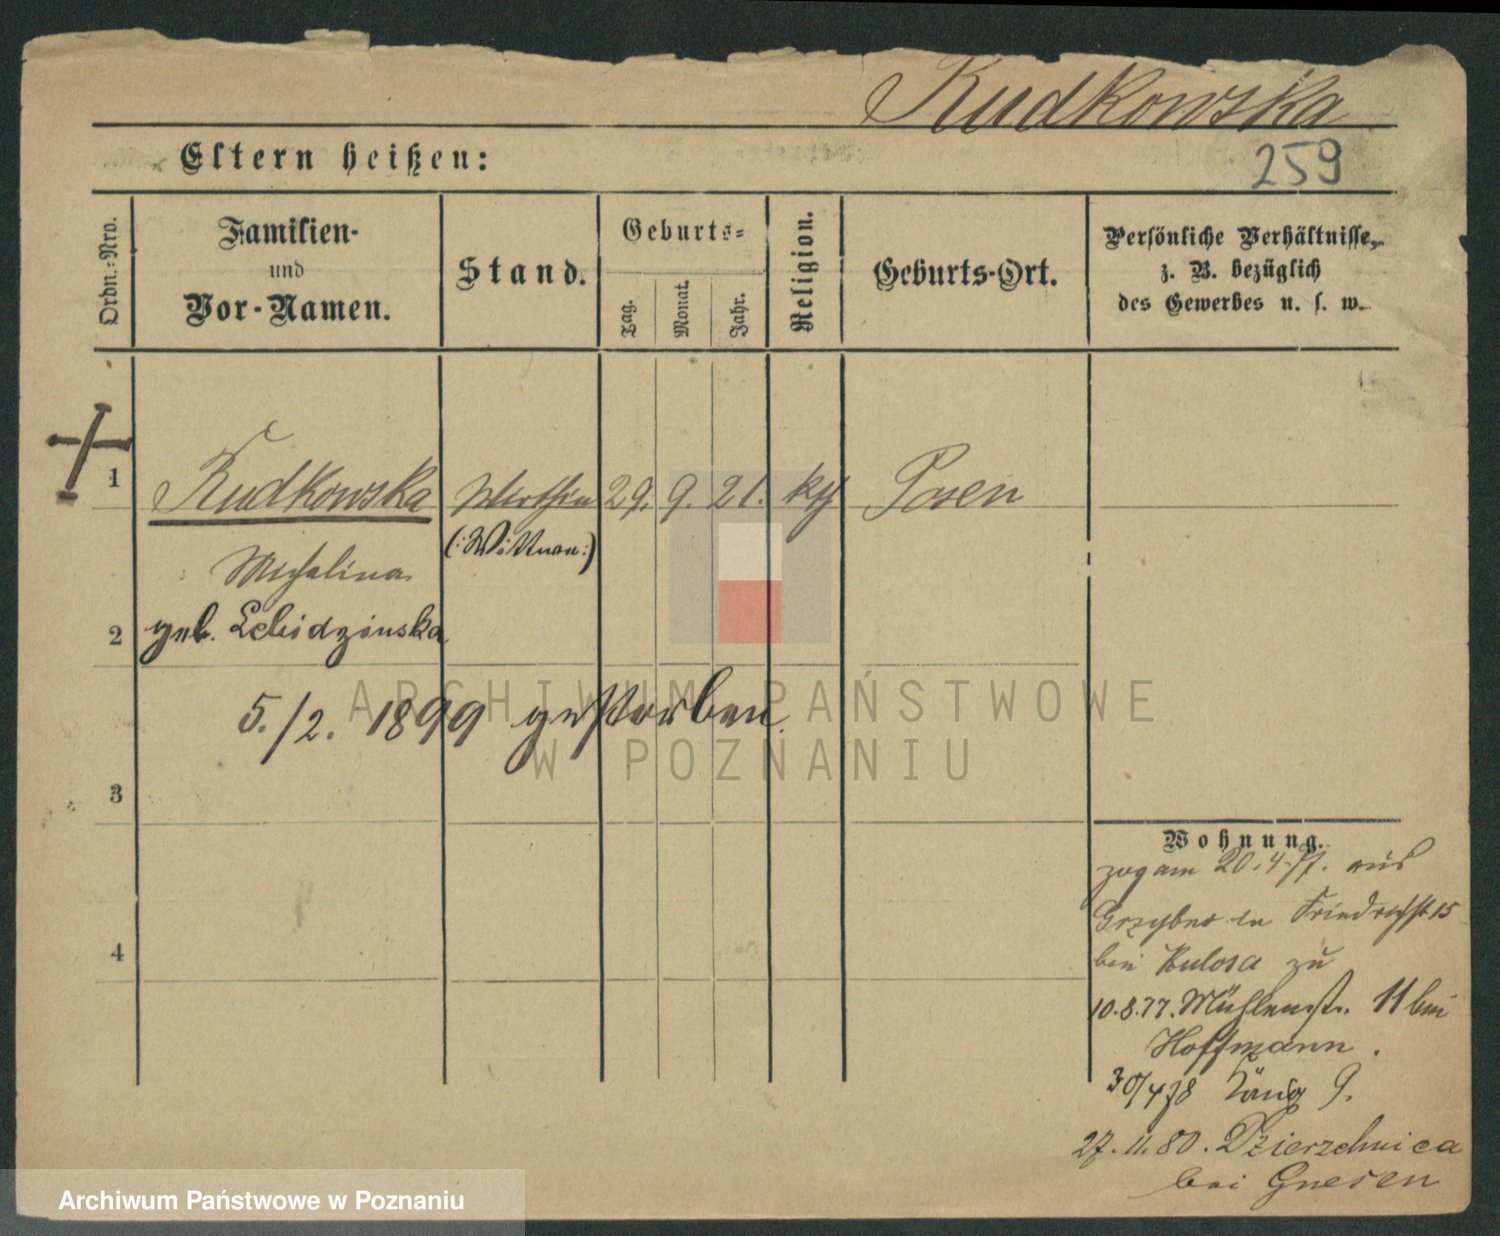 Rudkowska
259
Eltern heißen:
Ordn.-Nro.
Familien-
und
Vor-Namen.
Stand.
Geburts-
Tag.
Monat.
Jahr.
Religion.
Geburts-Ort.
Persönliche Verhältnisse,
z. B. bezüglich
des Gewerbes u. s. w.
1
Rudkowska Wirthin 29. 9. 21. kth Posen
(:Wittwe:)
Michalina
2
geb. Lebidzinska
5./2. 1899 gestorben
3
4
Wohnung.
zog am 20.4.77. aus
in Friedrichst 15
bei Kulosa zu
10.8.77. Mühlenstr. 11 bei
Hoffmann.
30/4 78 9.
27.11.80. Dzierzchnica
bei Gnesen
ARCHIWUM PAŃSTWOWE
W POZNANIU
Archiwum Państwowe w Poznaniu